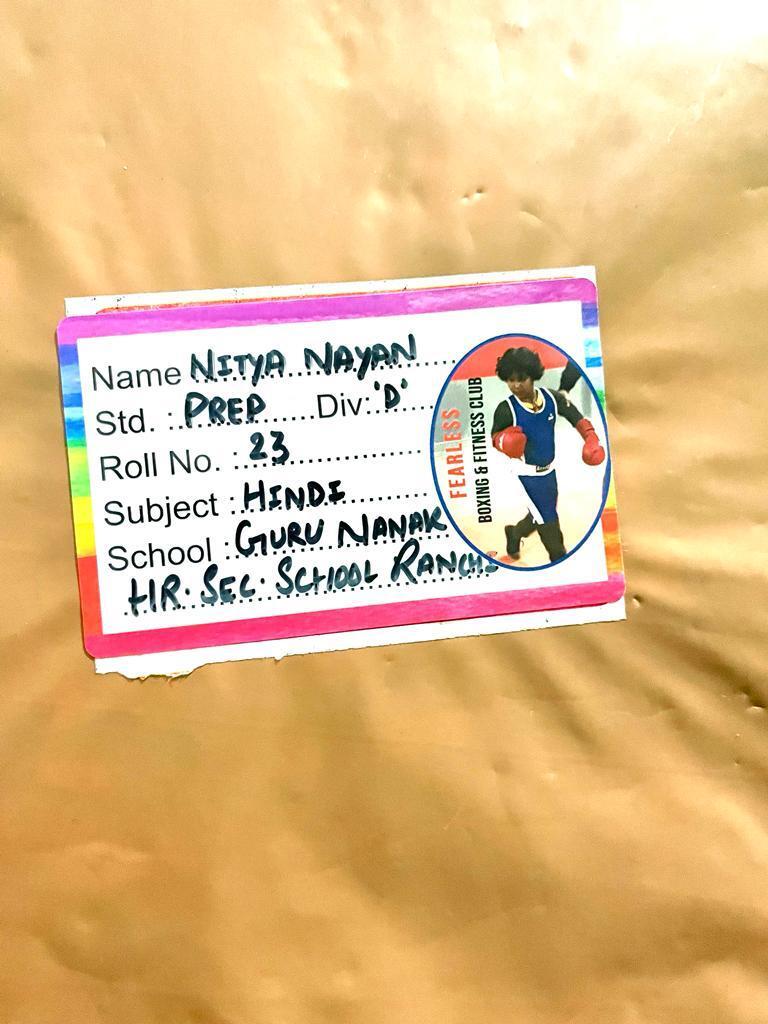 Name NITYA NAYAN
Std. : PREP Div: 'D'
Roll No. : 23
Subject : HINDI
School : GURU NANAK
HR. SEC. SCHOOL RANCHI
FEARLESS
BOXING & FITNESS CLUB